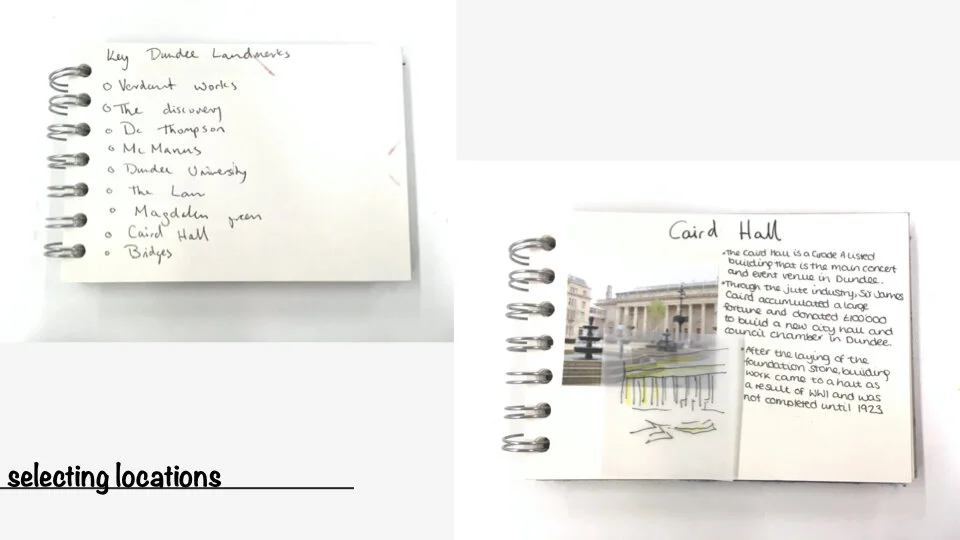 Key Dundee Landmarks
Verdant works
The discovery
Dc Thompson
McManus
Dundee University
The Law
Magdalen green
Caird Hall
Bridges
Caird Hall
The Caird Hall is a Grade A listed
building that is the main concert
and event venue in Dundee.
Through the jute industry, Sir James
Caird accumulated a large
fortune and donated £100'000
to build a new city hall and
council chamber in Dundee.
After the laying of the
foundation stone, building
work came to a halt as
a result of WW1 and was
not completed until 1923
selecting locations